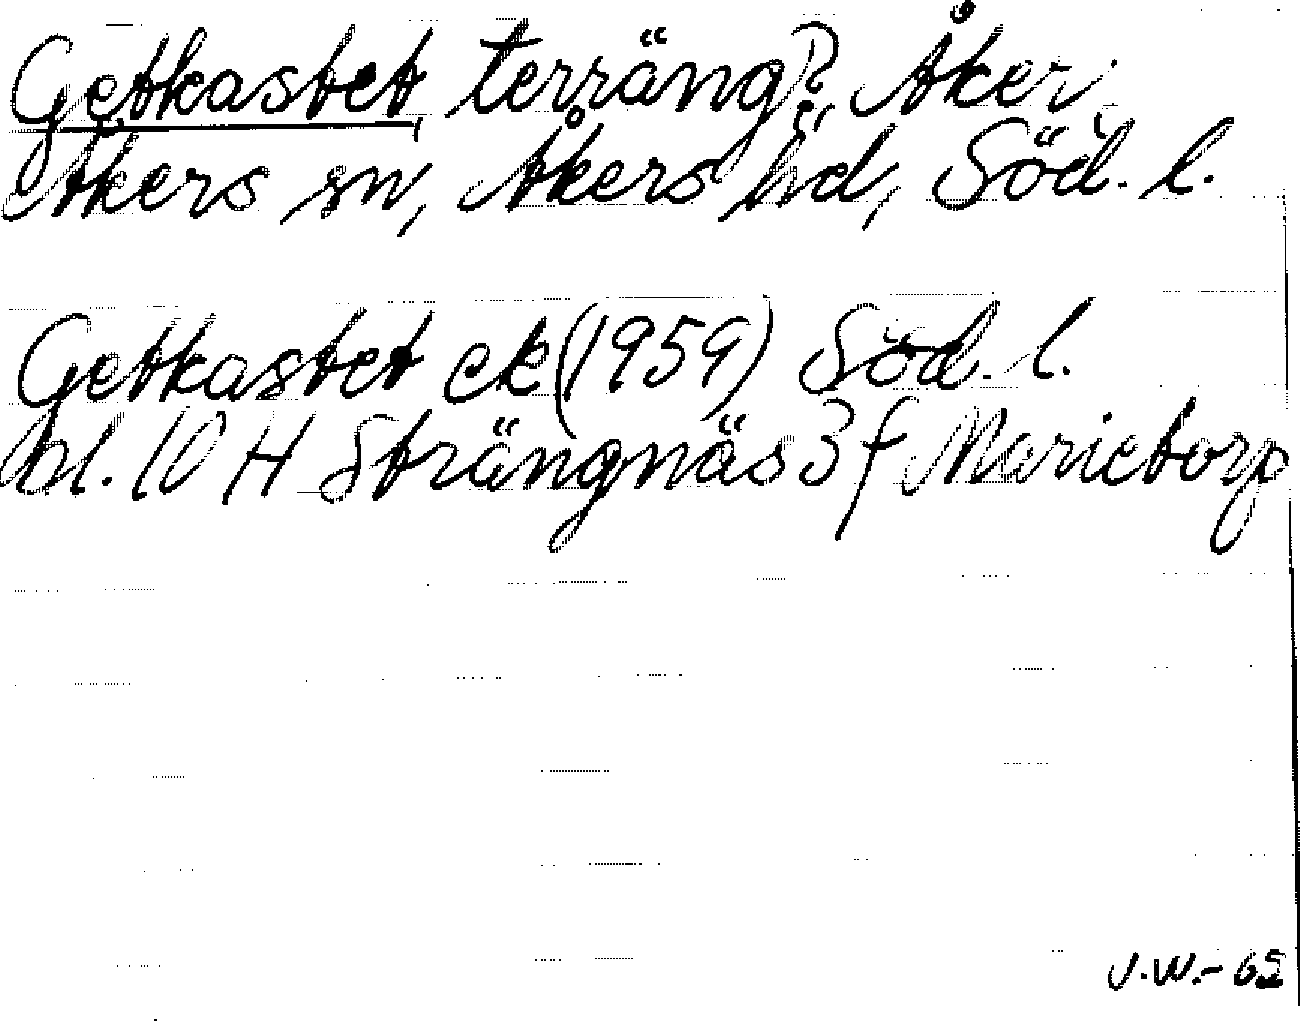 Getkastet, terräng?, Åker,
Åkers sn, Åkers hd, Söd. l.
Getkastet ek (1959) Söd. l.
bl. 10 H Strängnäs 3 f Marietorp
J.W.- 65